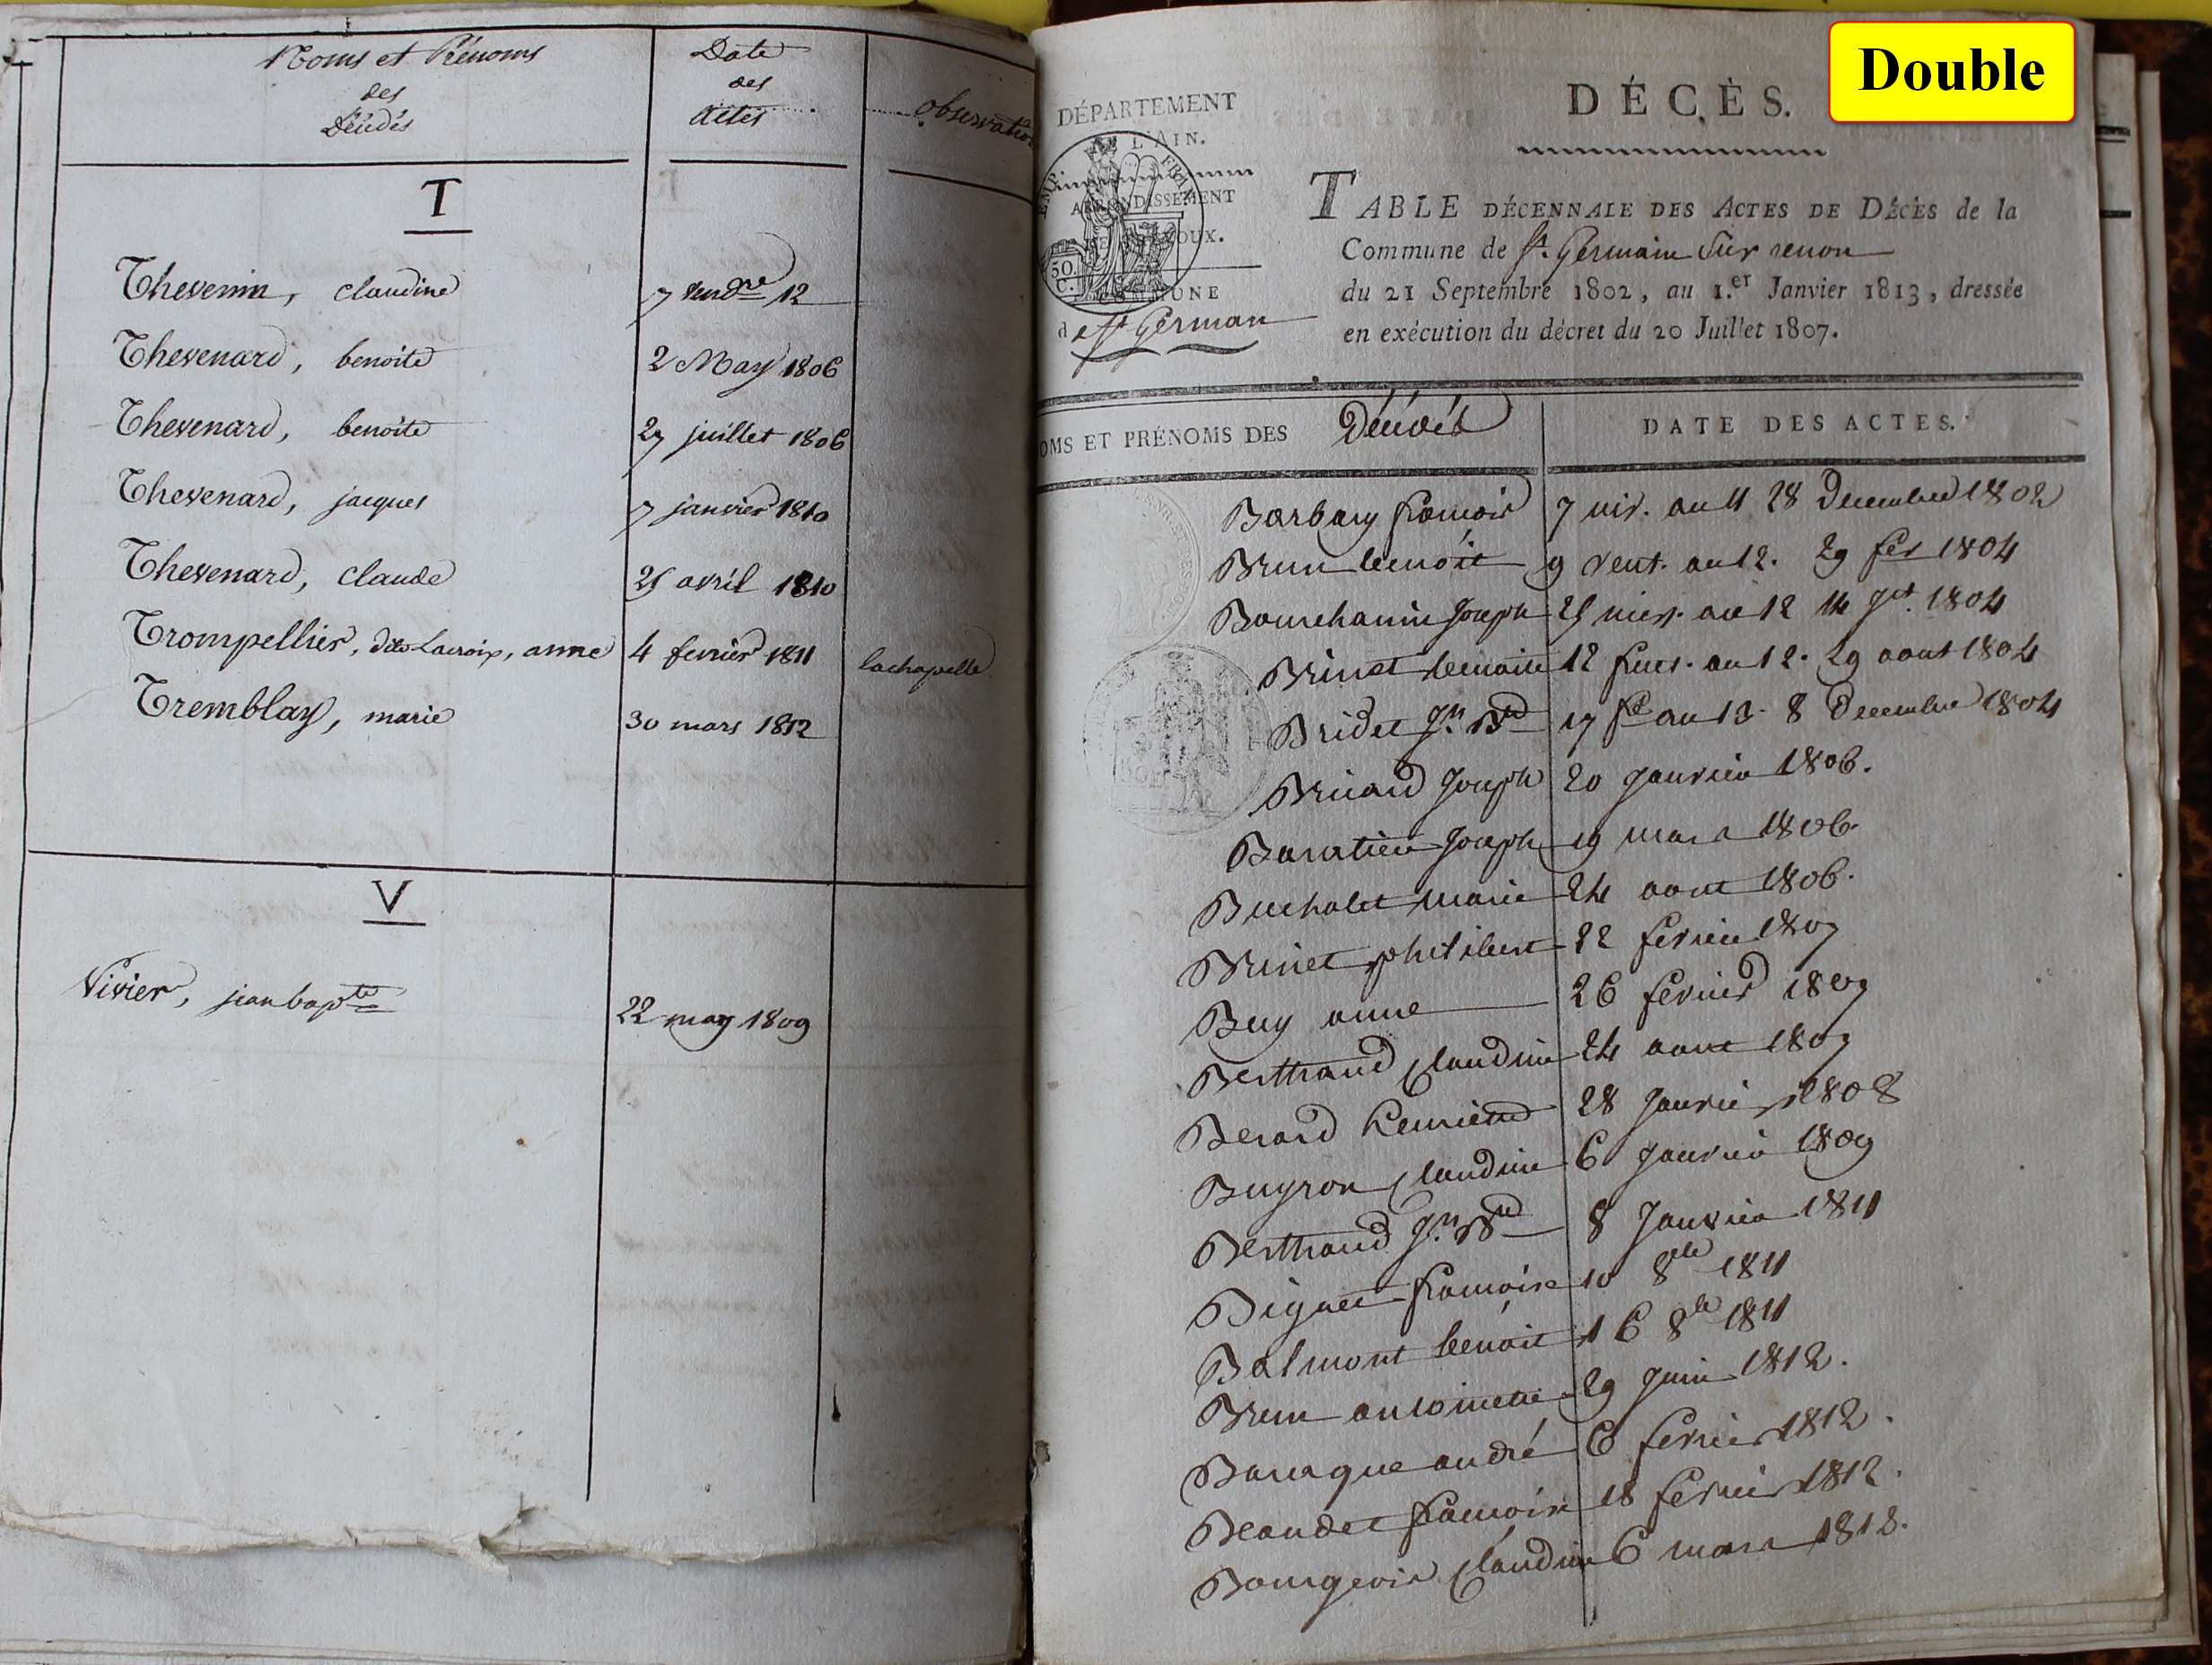 Noms et Prénoms
des
Décédés
Date
des
Actes
observation
T
Thevenin, claudine 7 vendre 12
Thevenard, benoite 2 May 1806
Thevenard, benoite 27 juillet 1806
Thevenard, jacques 7 janvier 1810
Thevenard, claude 25 avril 1810
Trompellier, dite Lacroix, anne 4 fevrier 1811 lachapelle
Tremblay, marie 30 mars 1812
V
Vivier, jean bapte 22 may 1809
Double
DÉPARTEMENT
L'AIN.
ARRONDISSEMENT
COMMUNE
de St German
50
C.
DÉCÈS.
TABLE DÉCENNALE DES ACTES DE DÉCÈS de la
Commune de St. Germain Sur renon
du 21 Septembre 1802, au 1.er Janvier 1813, dressée
en exécution du décret du 20 Juillet 1807.
OMS ET PRÉNOMS DES Décédés DATE DES ACTES.
Barbary francois 7 niv. an 11 28 Decembre 1802
Brun benoit 9 vent. an 12. 29 fer 1804
Joseph 25 an 12 14 1804
Brinet benoite 12 fruct. an 12. 29 aout 1804
Bridet Jn. Bd 17 an 13. 8 Decembre 1804
Joseph 20 Janvier 1806.
Joseph 19 mars 1806.
Buchalet marie 24 aout 1806.
Brinet philibert 22 fevrier 1807
Buy anne 26 fevrier 1807
Berttrand Claudine 24 aout 1807
Berard 28 Janvier 1808
Buyron Claudine 6 Janvier 1809
Berttrand Jn. Bd 8 Janvier 1811
Biguet francoise 10 8bre 1811
Balmont benoit 16 8bre 1811
Brun antoinette 29 Juin 1812.
Baraque andré 6 fevrier 1812.
Beaudet francoise 18 fevrier 1812.
Claudine 6 mars 1812.